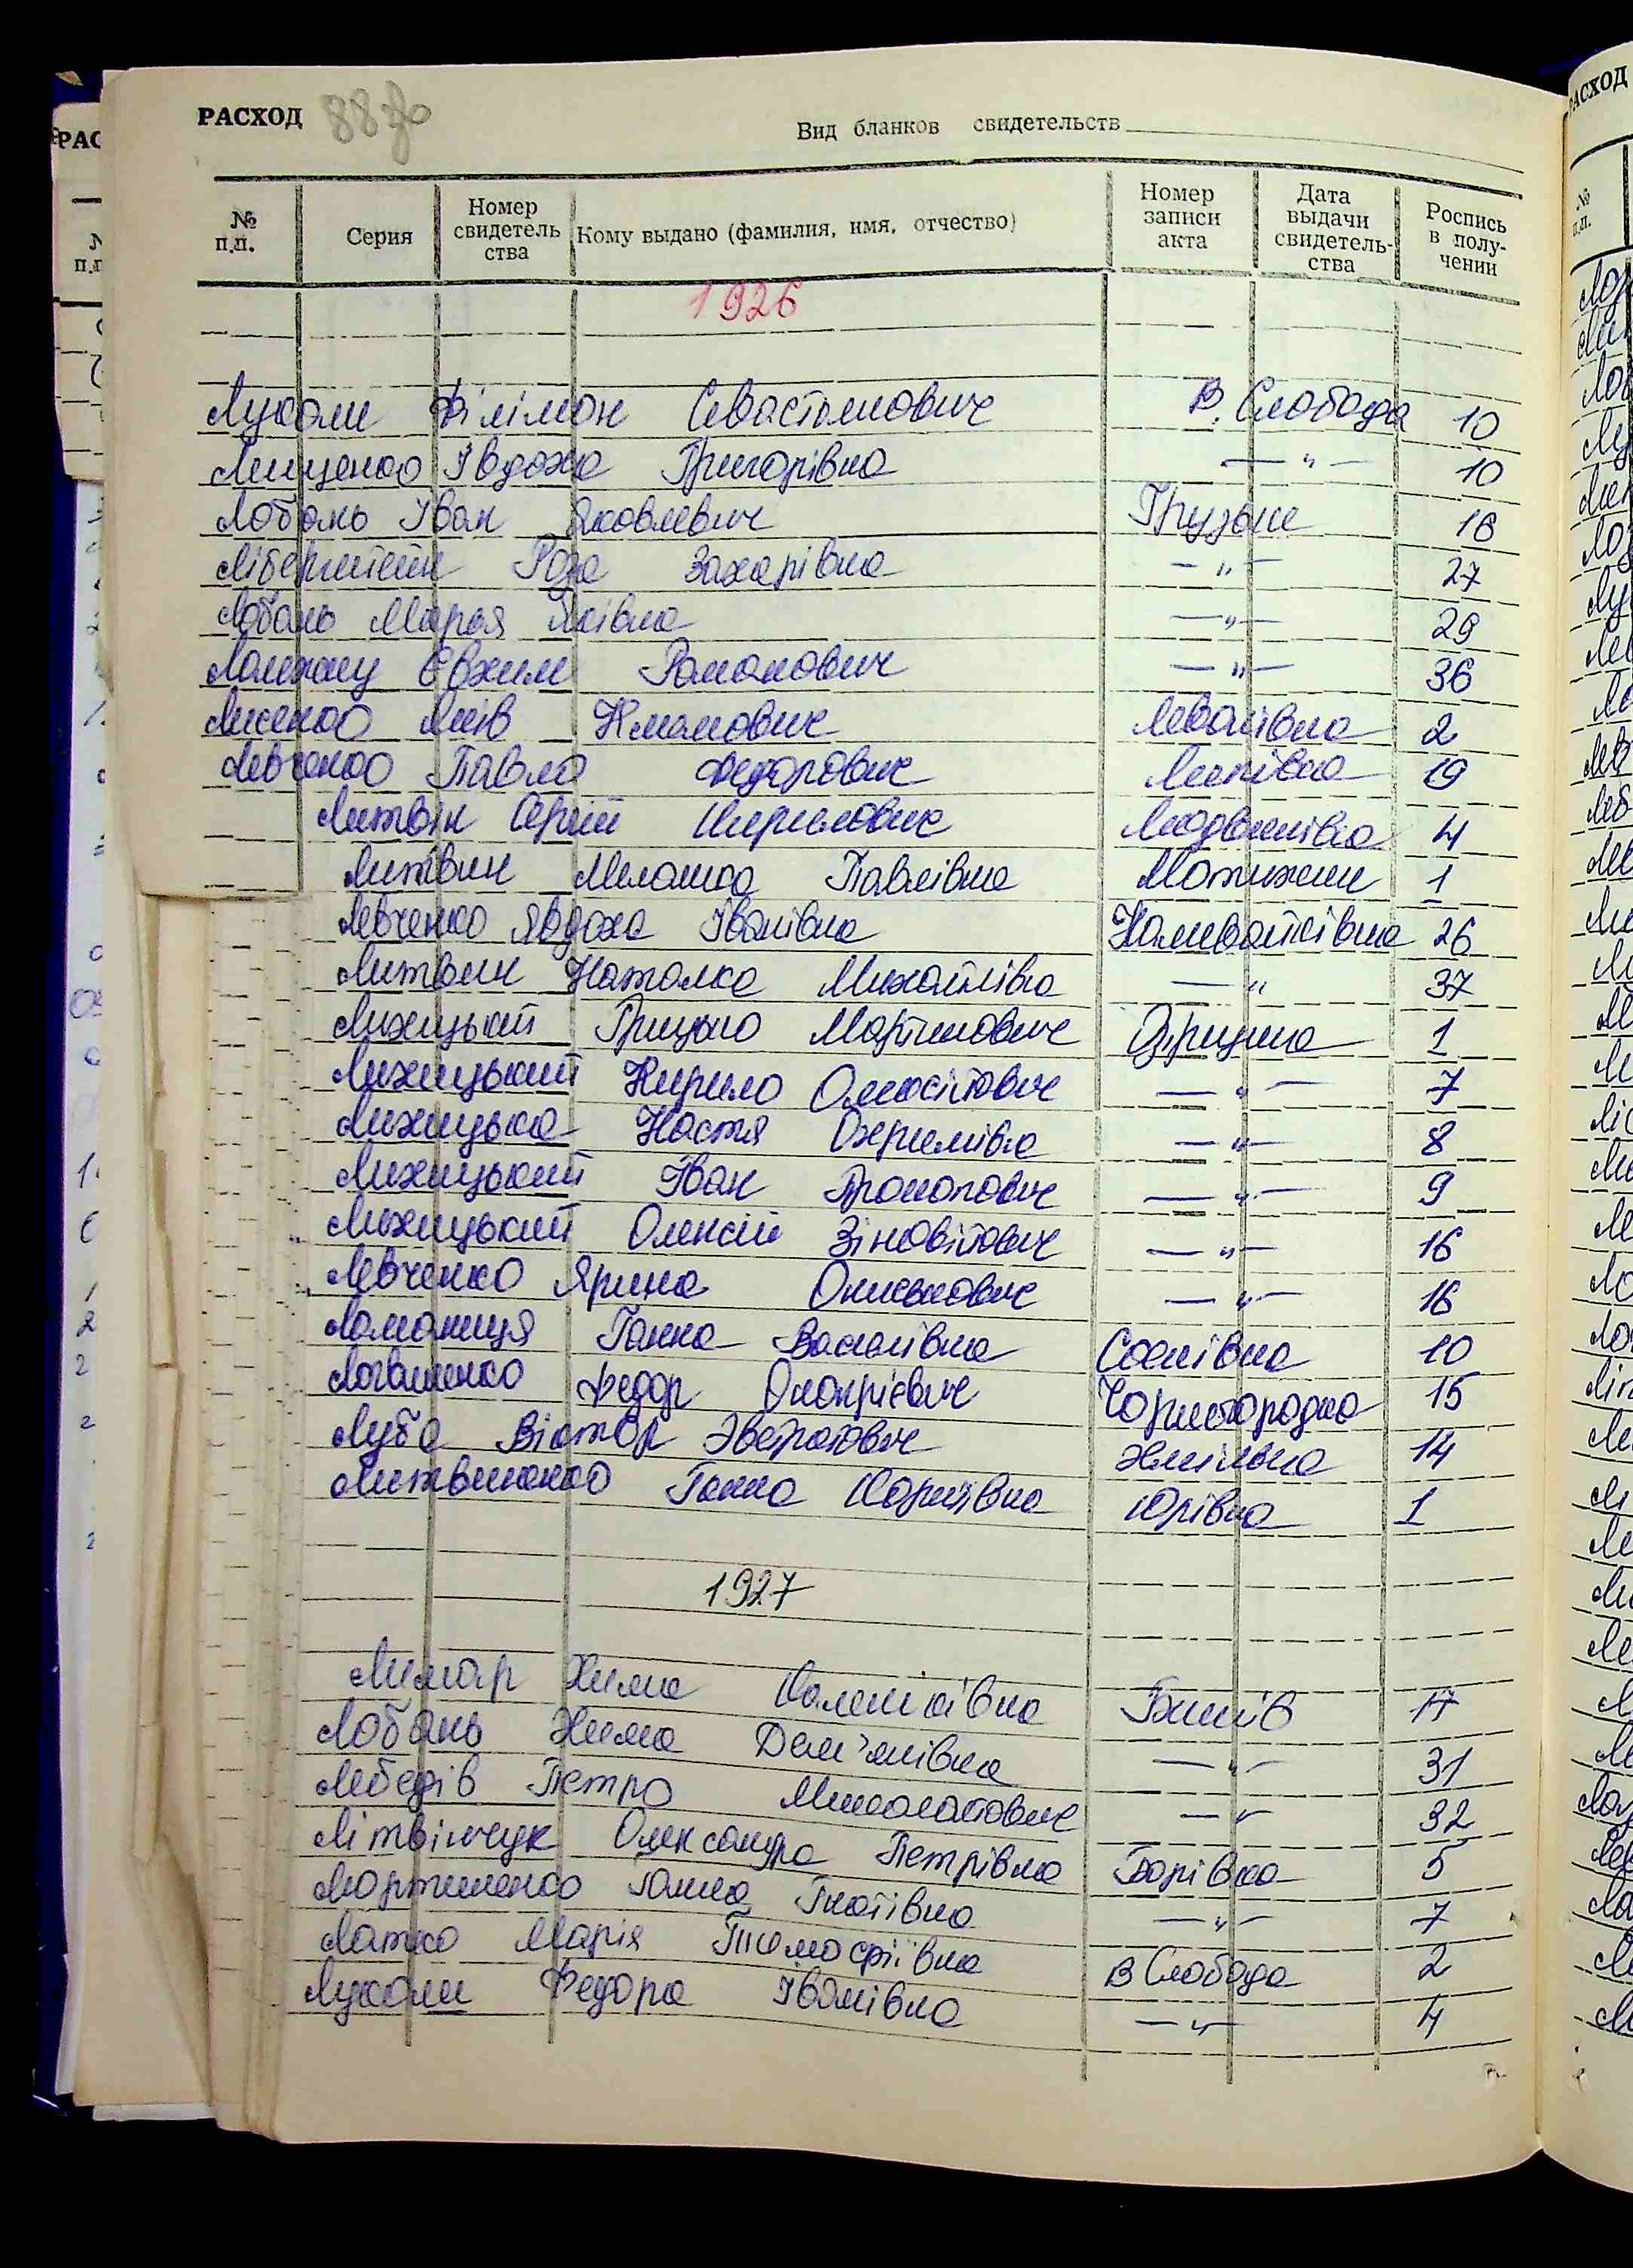 РАСХОД 88зв
Вид бланков свидетельств
№ п.п. Серия Номер свидетельства Кому выдано (фамилия, имя, отчество) Номер записи акта Дата выдачи свидетельства Роспись в получении
1926
Філімон Севастянович В. Слобода 10
Явдоха Григорівна —"— 10
Лобань Іван Яковлевич Грузьке 18
Ліберштейн Роза Захарівна —"— 27
Лобань Марья Яківна —"— 29
Євхим Романович —"— 36
Яків 2
Левченко Павло Федорович Липівка 19
Литвин Сергій Кирилович Людвинівка 4
Литвин Мелашка Павлівна Мотижин 1
Левченко Явдоха Іванівна Наливайківка 26
Литвин Наталка Михайлівна —"— 37
Лихицький Грицько Мартинович 1
Лихицький Кирило —"— 7
Лихицька Настя Охримівна —"— 8
Лихицький Іван Прокопович —"— 9
Лихицький Олексій Зіновійович —"— 16
Левченко Ярина —"— 16
Ломаниця Ганна Василівна Соснівка 10
Логвиненко Федор Чорногородка 15
Луба Віктор 14
Литвиненко Ганна Корніївна Юрівка 1
1927
Лимар Хима Бишів 17
Лобань Хима Дем'янівна —"— 31
Лебедів Петро Миколайович —"— 32
Літвінчук Олександра Петрівна Борівка 5
Ганна Гнатівна —"— 7
Латко Марія Тимофіївна В Слобода 2
Федора Іванівна —"— 4